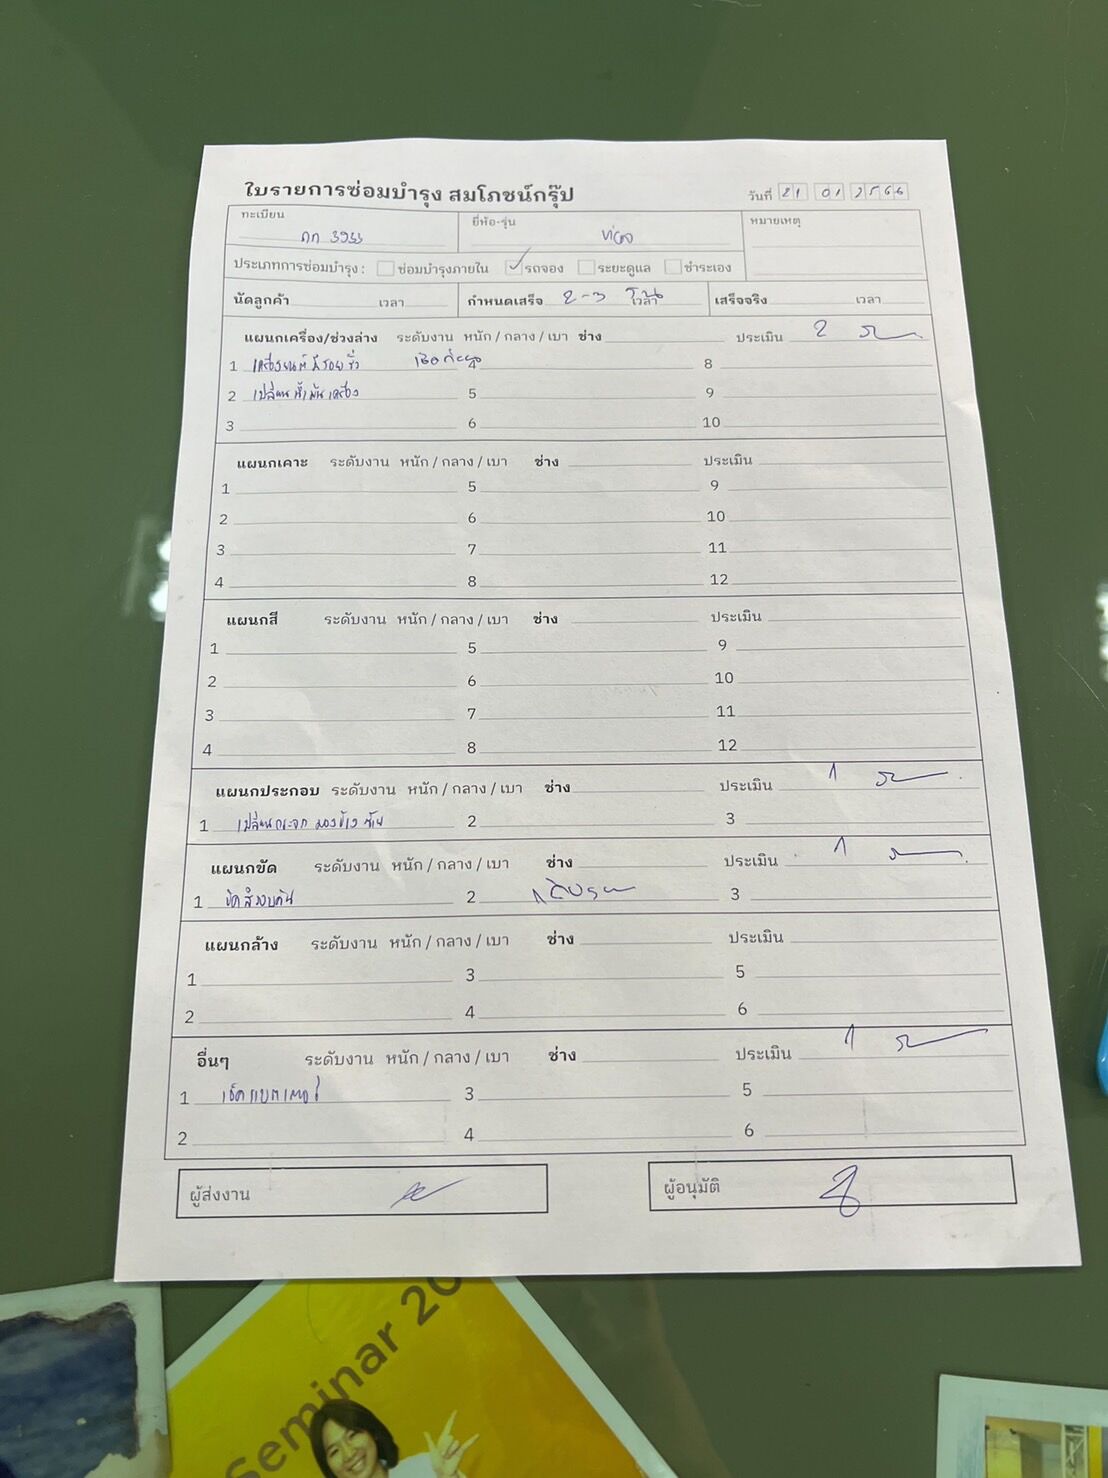 ใบรายการซ่อมบำรุง สมโภชน์กรุ๊ป วันที่ 21 01 2566
ทะเบียน ยี่ห้อ-รุ่น หมายเหตุ
3933 vigo
ประเภทการซ่อมบำรุง : ซ่อมบำรุงภายใน รถจอง ระยะดูแล ชำระเอง
นัดลูกค้า เวลา กำหนดเสร็จ 2-3 วัน เวลา เสร็จจริง เวลา
แผนกเครื่อง/ช่วงล่าง ระดับงาน หนัก / กลาง / เบา ช่าง ประเมิน 2
1 เครื่องยนต์มีรอยรั่ว 4 8
2 เปลี่ยนน้ำมันเครื่อง 5 9
3 6 10
แผนกเคาะ ระดับงาน หนัก / กลาง / เบา ช่าง ประเมิน
1 5 9
2 6 10
3 7 11
4 8 12
แผนกสี ระดับงาน หนัก / กลาง / เบา ช่าง ประเมิน
1 5 9
2 6 10
3 7 11
4 8 12
แผนกประกอบ ระดับงาน หนัก / กลาง / เบา ช่าง ประเมิน 1
1 เปลี่ยนกระจกมองข้างซ้าย 2 3
แผนกขัด ระดับงาน หนัก / กลาง / เบา ช่าง ประเมิน 1
1 ขัดสีรอบคัน 2 3
แผนกล้าง ระดับงาน หนัก / กลาง / เบา ช่าง ประเมิน
1 3 5
2 4 6
อื่นๆ ระดับงาน หนัก / กลาง / เบา ช่าง ประเมิน 1
1 เช็คแบตเตอรี่ 3 5
2 4 6
ผู้ส่งงาน ผู้อนุมัติ
Seminar 20